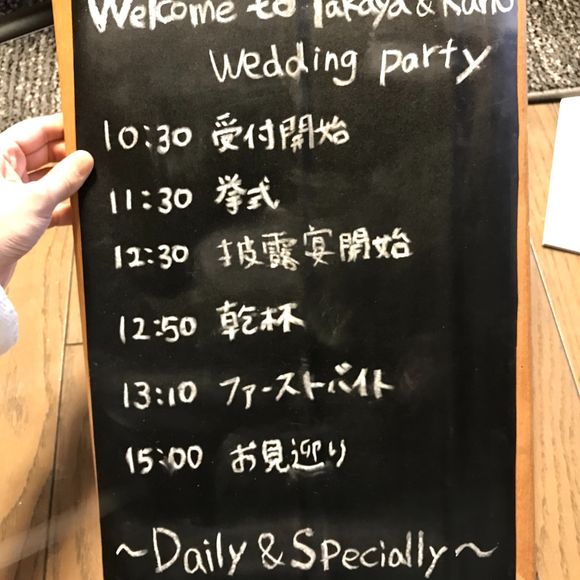 Welcome to Takaya & Kaho
wedding party
10:30 受付開始
11:30 挙式
12:30 披露宴開始
12:50 乾杯
13:10 ファーストバイト
15:00 お見迎り
~Daily & Specially~